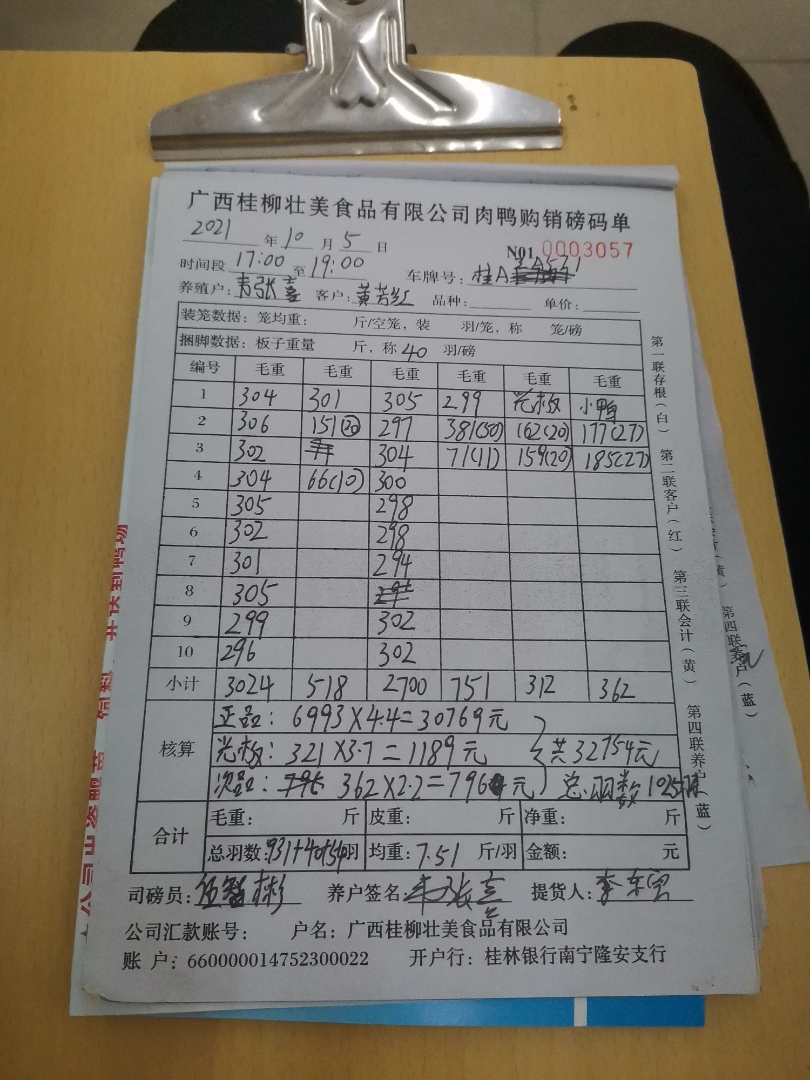 广西桂柳壮美食品有限公司肉鸭购销磅码单
2021 年 10 月 5 日
N01 0003057
时间段 17:00 至 19:00 车牌号: 桂A
养殖户: 韦张喜 客户: 黄芳红 品种: 单价:
装笼数据: 笼均重: 斤/空笼, 装 羽/笼, 称 笼/磅
捆脚数据: 板子重量 斤, 称 40 羽/磅
编号 毛重 毛重 毛重 毛重 毛重 毛重
1 304 301 305 299 光板 小鸭
2 306 151(20) 297 381(50) 162(20) 177(27)
3 302 304 71(11) 159(20) 185(27)
4 304 66(10) 300
5 305 298
6 302 298
7 301 294
8 305
9 299 302
10 296 302
小计 3024 518 2700 751 312 362
核算
正品: 6993×4.4=30769元
光板: 321×3.7=1189元 共32754元
次品: 362×2.2=796元 总羽数1025羽
合计
毛重: 斤 皮重: 斤 净重: 斤
总羽数: 931+40+54羽 均重: 7.51 斤/羽 金额: 元
司磅员: 养户签名 韦张喜 提货人: 李东
公司汇款账号: 户名: 广西桂柳壮美食品有限公司
账 户: 660000014752300022 开户行: 桂林银行南宁隆安支行
第一联存根(白) 第二联客户(红) 第三联会计(黄) 第四联养户(蓝)
第四联养户(蓝)